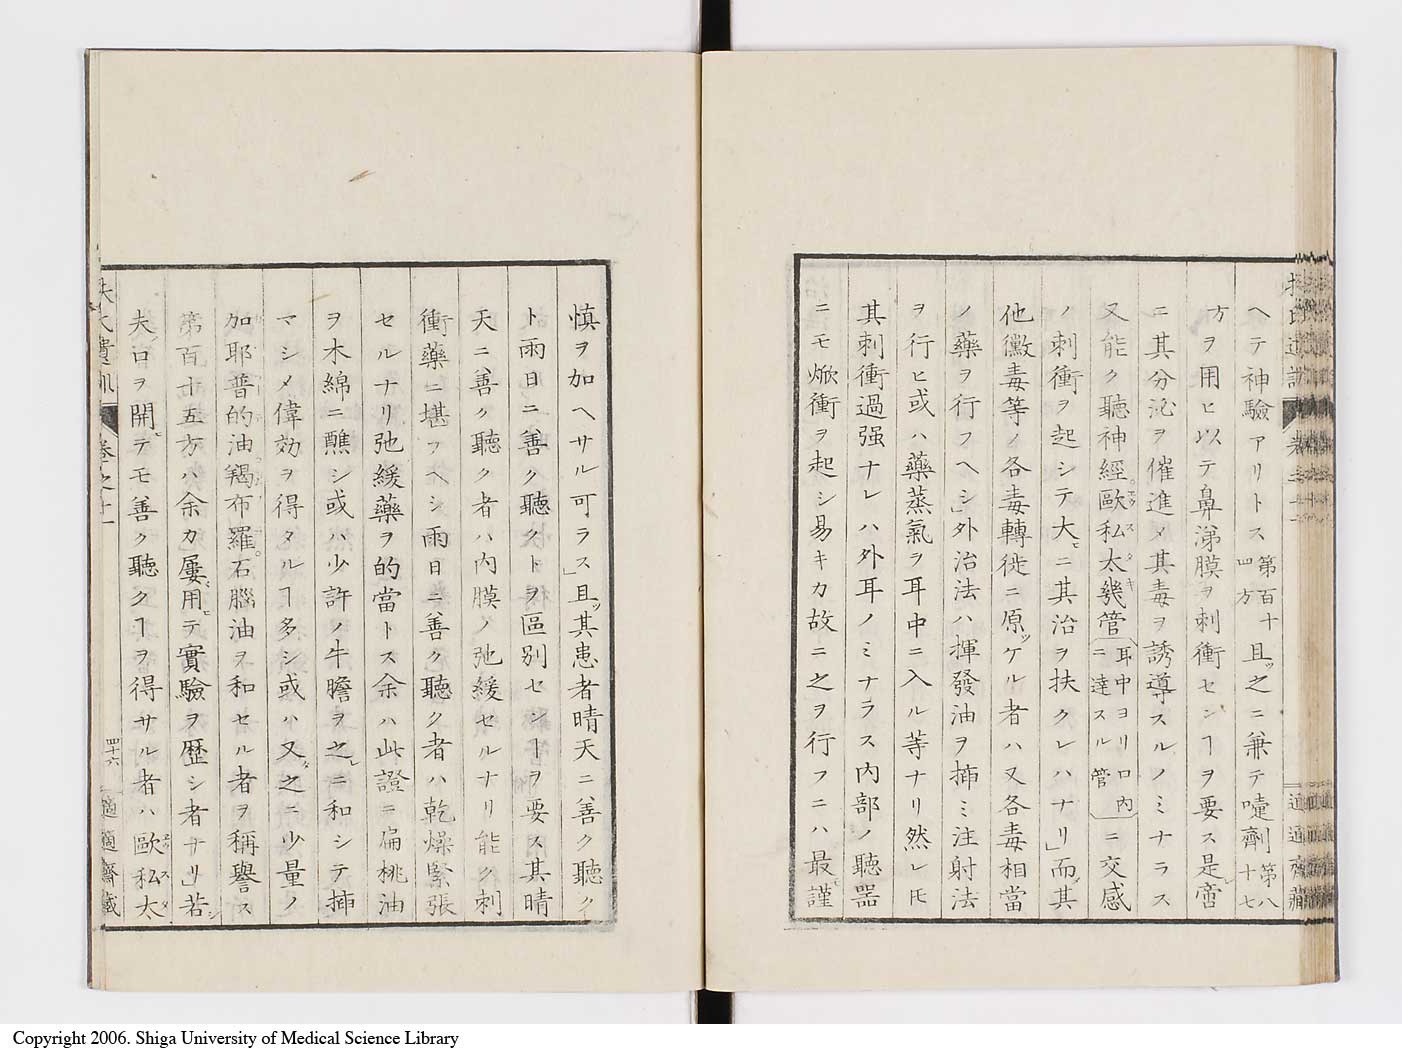 ヘテ神驗アリトス第百十四方且ツ之ニ兼テ嚏劑第八十七
方ヲ用ヒ以テ鼻涕膜ヲ刺衝センヿヲ要ス是レ啻
ニ其分泌ヲ催進メ其毒ヲ誘導スルノミナラス
又能ク聽神經歐私太幾管耳中ヨリ口内ニ達スル管ニ交感
ノ刺衝ヲ起シテ大ヒニ其治ヲ扶クレハナリ」而メ其
他黴毒等ノ各毒轉徙ニ原ツケル者ハ又各毒相當
ノ藥ヲ行フヘシ」外治法ハ揮發油ヲ揷ミ注射法
ヲ行ヒ或ハ藥蒸氣ヲ耳中ニ入ル等ナリ然レ𪜈
其刺衝過强ナレハ外耳ノミナラス内部ノ聽器
ニモ焮衝ヲ起シ易キカ故ニ之ヲ行フニハ最モ謹
慎ヲ加ヘサル可ラス」且ツ其患者晴天ニ善ク聽ク
ト雨日ニ善ク聽クトヲ區別センヿヲ要ス其晴
天ニ善ク聽ク者ハ内膜ノ弛緩セルナリ能ク刺
衝藥ニ堪フヘシ雨日ニ善ク聽ク者ハ乾燥緊張
セルナリ弛緩藥ヲ的當トス余ハ此證ニ扁桃油
ヲ木綿ニ醮シ或ハ少許ノ牛膽ヲ之レニ和シテ揷
マシメ偉効ヲ得タルヿ多シ或ハ又タ之ニ少量ノ
加耶普的油羯布羅石腦油ヲ和セル者ヲ稱譽ス
第百十五方ハ余カ屢〻用ヒテ實驗ヲ歴シ者ナリ」若シ
夫レ口ヲ開ヒテモ善ク聽クヿヲ得サル者ハ歐私太
扶氏遺訓
卷之十一
四十六
適適齋藏